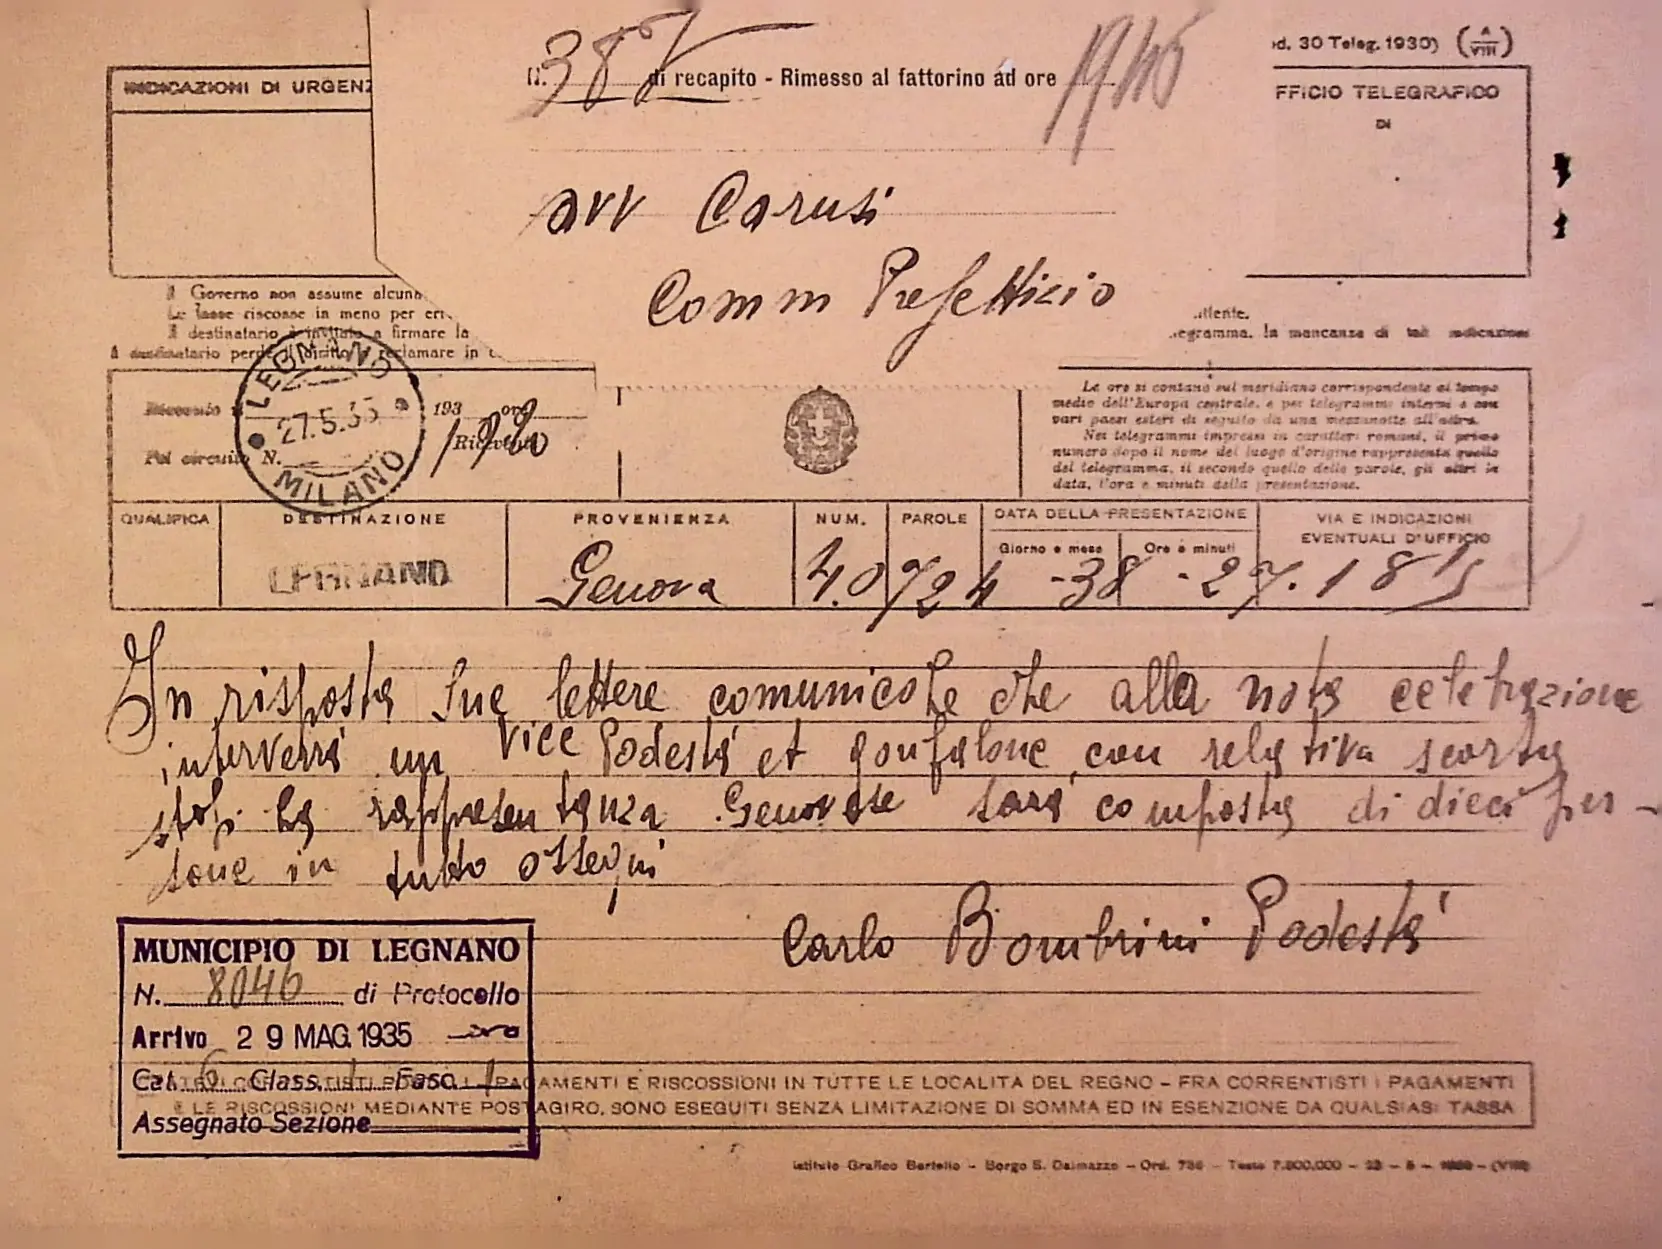 (Mod. 30 Teleg. 1930) (A/VIII)
N. 387 di recapito - Rimesso al fattorino ad ore 1945
INDICAZIONI DI URGENZ
FFICIO TELEGRAFICO
DI
avv Carusi
Comm Prefettizio
Il Governo non assume alcuna
Le tasse riscosse in meno per err
Il destinatario è invitato a firmare la
Il destinatario perde il diritto reclamare in c
ttente.
egramma. la mancanza di tali indicazioni
LEGNANO
27.5.35
MILANO
Ricevuto il 193 ore
Pel circuito N. Ricevente
Le ore si contano sul meridiano corrispondente al tempo
medio dell'Europa centrale, e per telegrammi interni e con
vari paesi esteri di seguito da una mezzanotte all'altra.
Nei telegrammi impressi in caratteri romani, il primo
numero dopo il nome del luogo d'origine rappresenta quello
del telegramma, il secondo quello delle parole, gli altri la
data, l'ora e minuti della presentazione.
QUALIFICA DESTINAZIONE PROVENIENZA NUM. PAROLE DATA DELLA PRESENTAZIONE VIA E INDICAZIONI
Giorno e mese Ore e minuti EVENTUALI D'UFFICIO
LEGNANO Genova 40724 -38 -27. 1815
In risposta Sue lettere comunicole che alla nota celebrazione
interverrà un Vice Podestà et gonfalone con relativa scorta
stop. La rappresentanza Genovese sarà composta di dieci per-
sone in tutto ossequi
Carlo Bombrini Podestà
MUNICIPIO DI LEGNANO
N. 8046 di Protocollo
Arrivo 29 MAG. 1935
Cat. 6 Class. 1 Fasc. 1
Assegnato Sezione
PAGAMENTI E RISCOSSIONI IN TUTTE LE LOCALITA DEL REGNO - FRA CORRENTISTI I PAGAMENTI
E LE RISCOSSIONI MEDIANTE POSTAGIRO, SONO ESEGUITI SENZA LIMITAZIONE DI SOMMA ED IN ESENZIONE DA QUALSIASI TASSA
Istituto Grafico Bertello - Borgo S. Dalmazzo - Ord. 736 - Teste 7.800.000